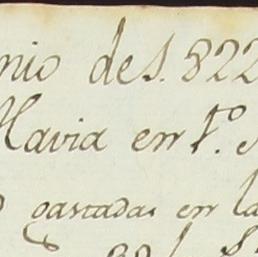 nio de 1.822
Mavia en 1.º
gastadas en la